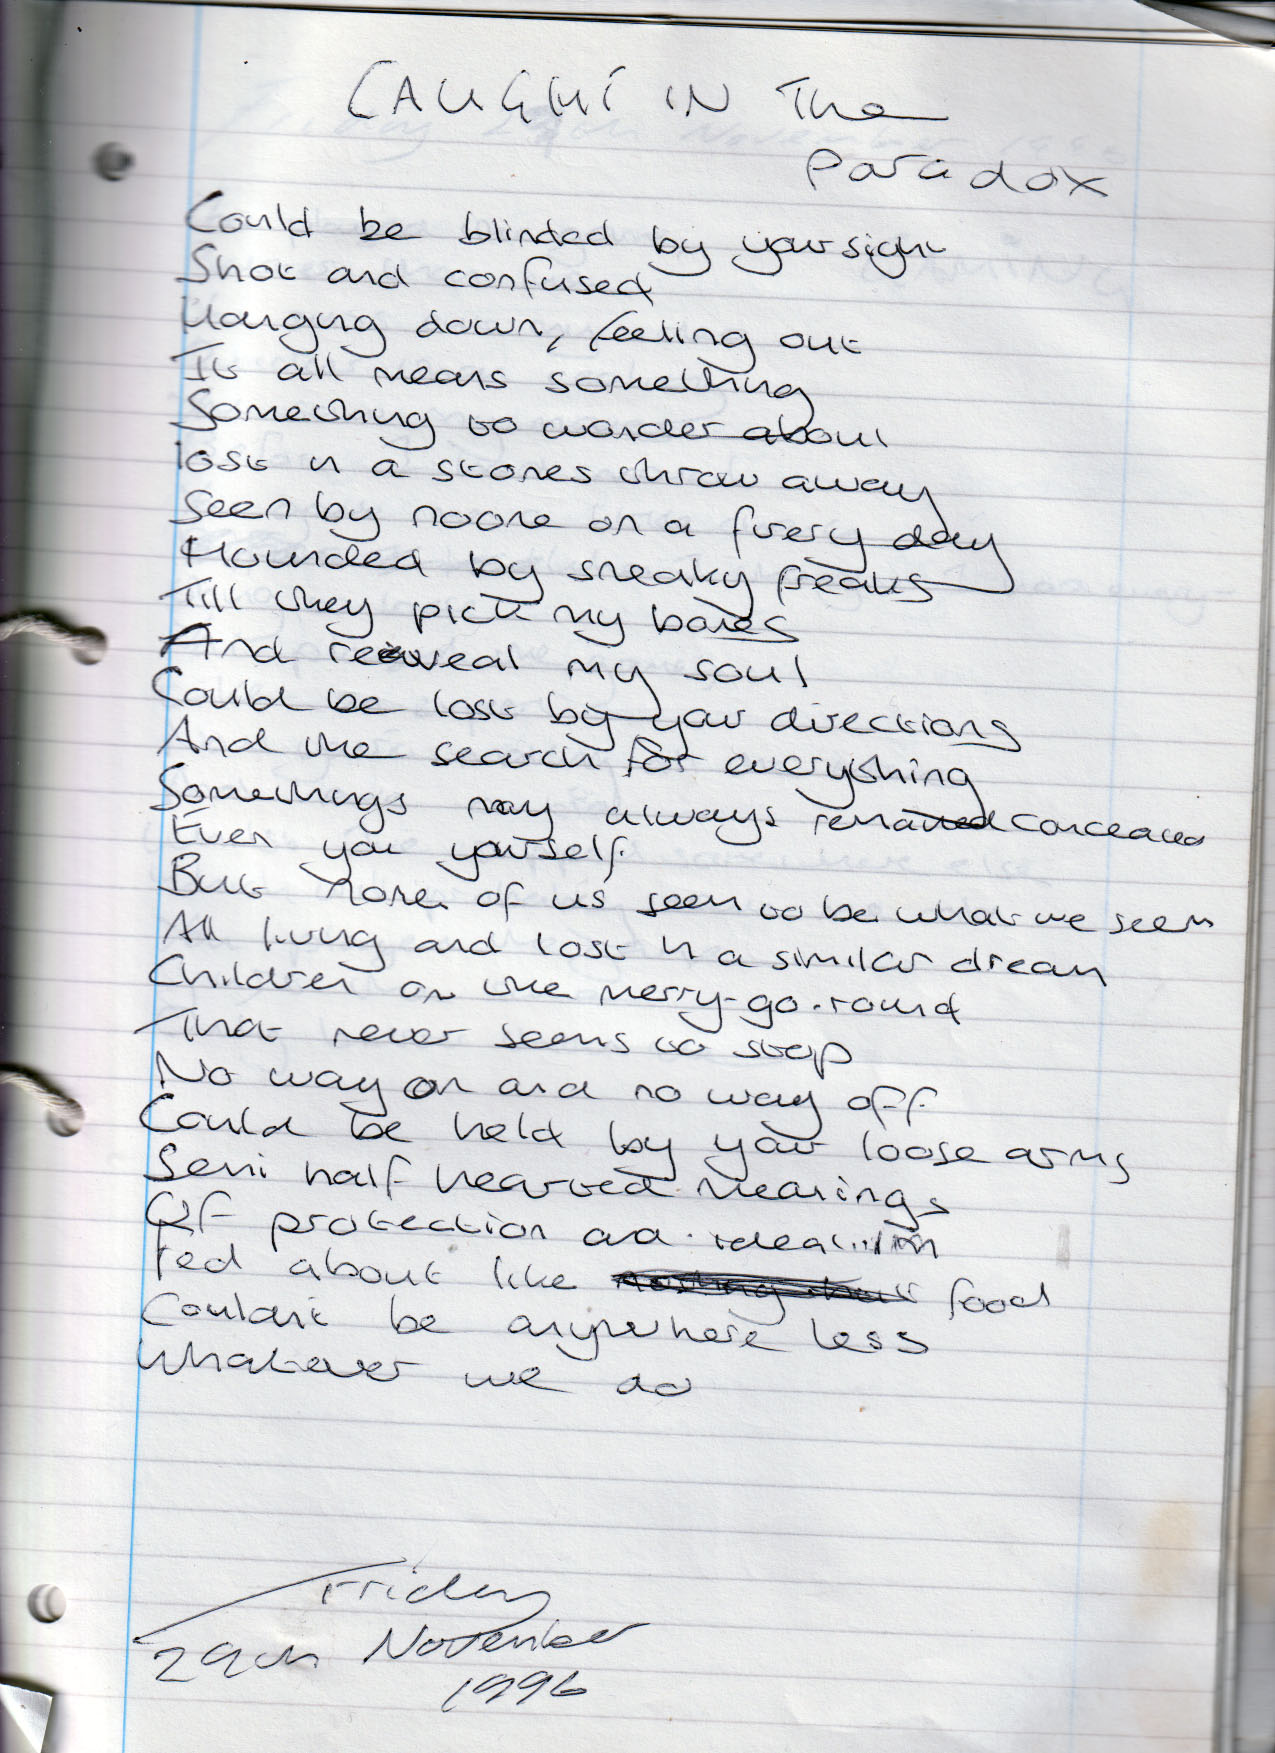 CAUGHT IN The
Paradox
Could be blinded by your sight
Shot and confused
Hanging down, feeling out
Its all means something
Something to wonder about
lost in a stones throw away
Seen by noone on a firery day
Hounded by sneaky freaks
Till they pick my bones
And reveal my soul
Could be lost by your directions
And the search for everything
Somethings may always concealed
Even you yourself
But none of us seem to be what we seem
All living and lost in a similar dream
Children on the merry-go-round
That never seems to stop
No way on and no way off
Could be held by your loose arms
Semi half hearted meanings
Of protection and
Fed about like food
Couldnt be anywhere less
Whatever we do
Friday
29th November
1996